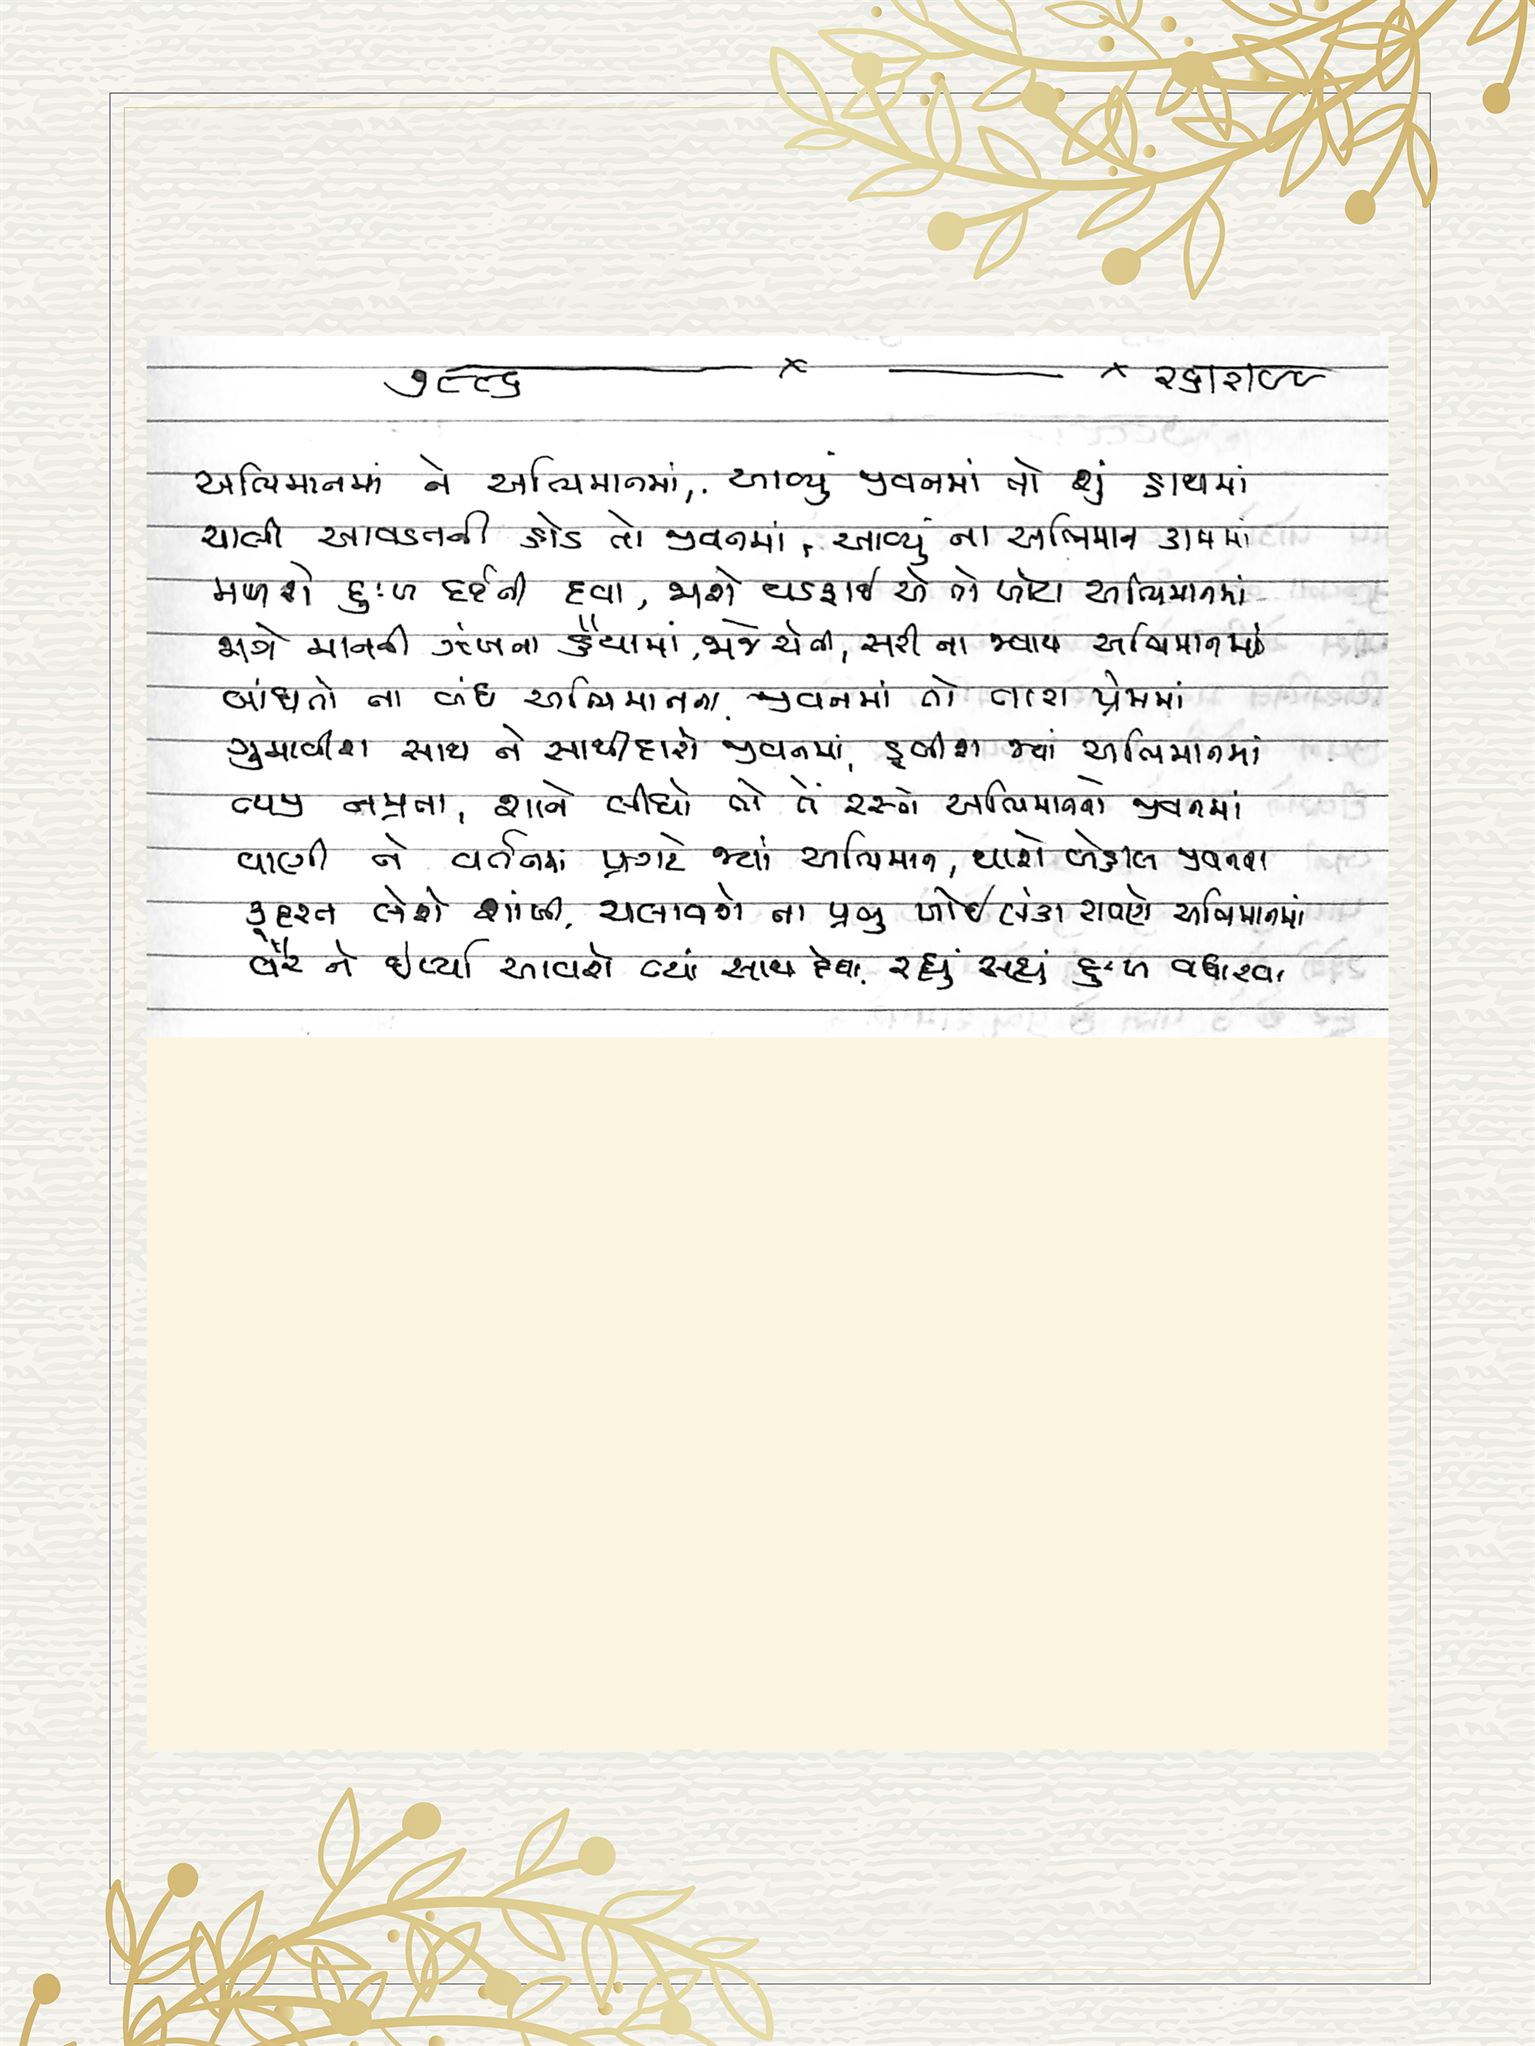 ૭૯૯૬ ——— × ——— × ૨૬/૫/૯૯
અભિમાનમાં ને અભિમાનમાં, આવ્યું જીવનમાં તો શું હાથમાં
ચાલી આવડતની હોડ તો જીવનમાં, આવ્યું ના અભિમાન કામમાં
મળશે દુઃખ દર્દની દવા, જાશે થડકાઈ એ તો ખોટા અભિમાનમાં
જાગે માનની ઝંખના હૈયામાં, જાજે ચેતી, સરી ના જવાય અભિમાનમાં
બાંધતો ના બંધ અભિમાનના જીવનમાં તો તારા પ્રેમમાં
ગુમાવીશ સાથ ને સાથીદારો જીવનમાં, ડૂબીશ જ્યાં અભિમાનમાં
ત્યજી નમ્રતા, શાને લીધો તો તેં રસ્તો અભિમાનનો જીવનમાં
વાણી ને વર્તનમાં પ્રગટે જ્યાં અભિમાન, થાશે બેહાલ જીવનના
કુદરત લેશે શાંખી, ચલાવશે ના પ્રભુ ખોઈ લંકા રાવણે અભિમાનમાં
વૈર ને ઈર્ષ્યા આવશે ત્યાં સાથ દેવા, રહ્યું સહ્યું દુઃખ વધારવા